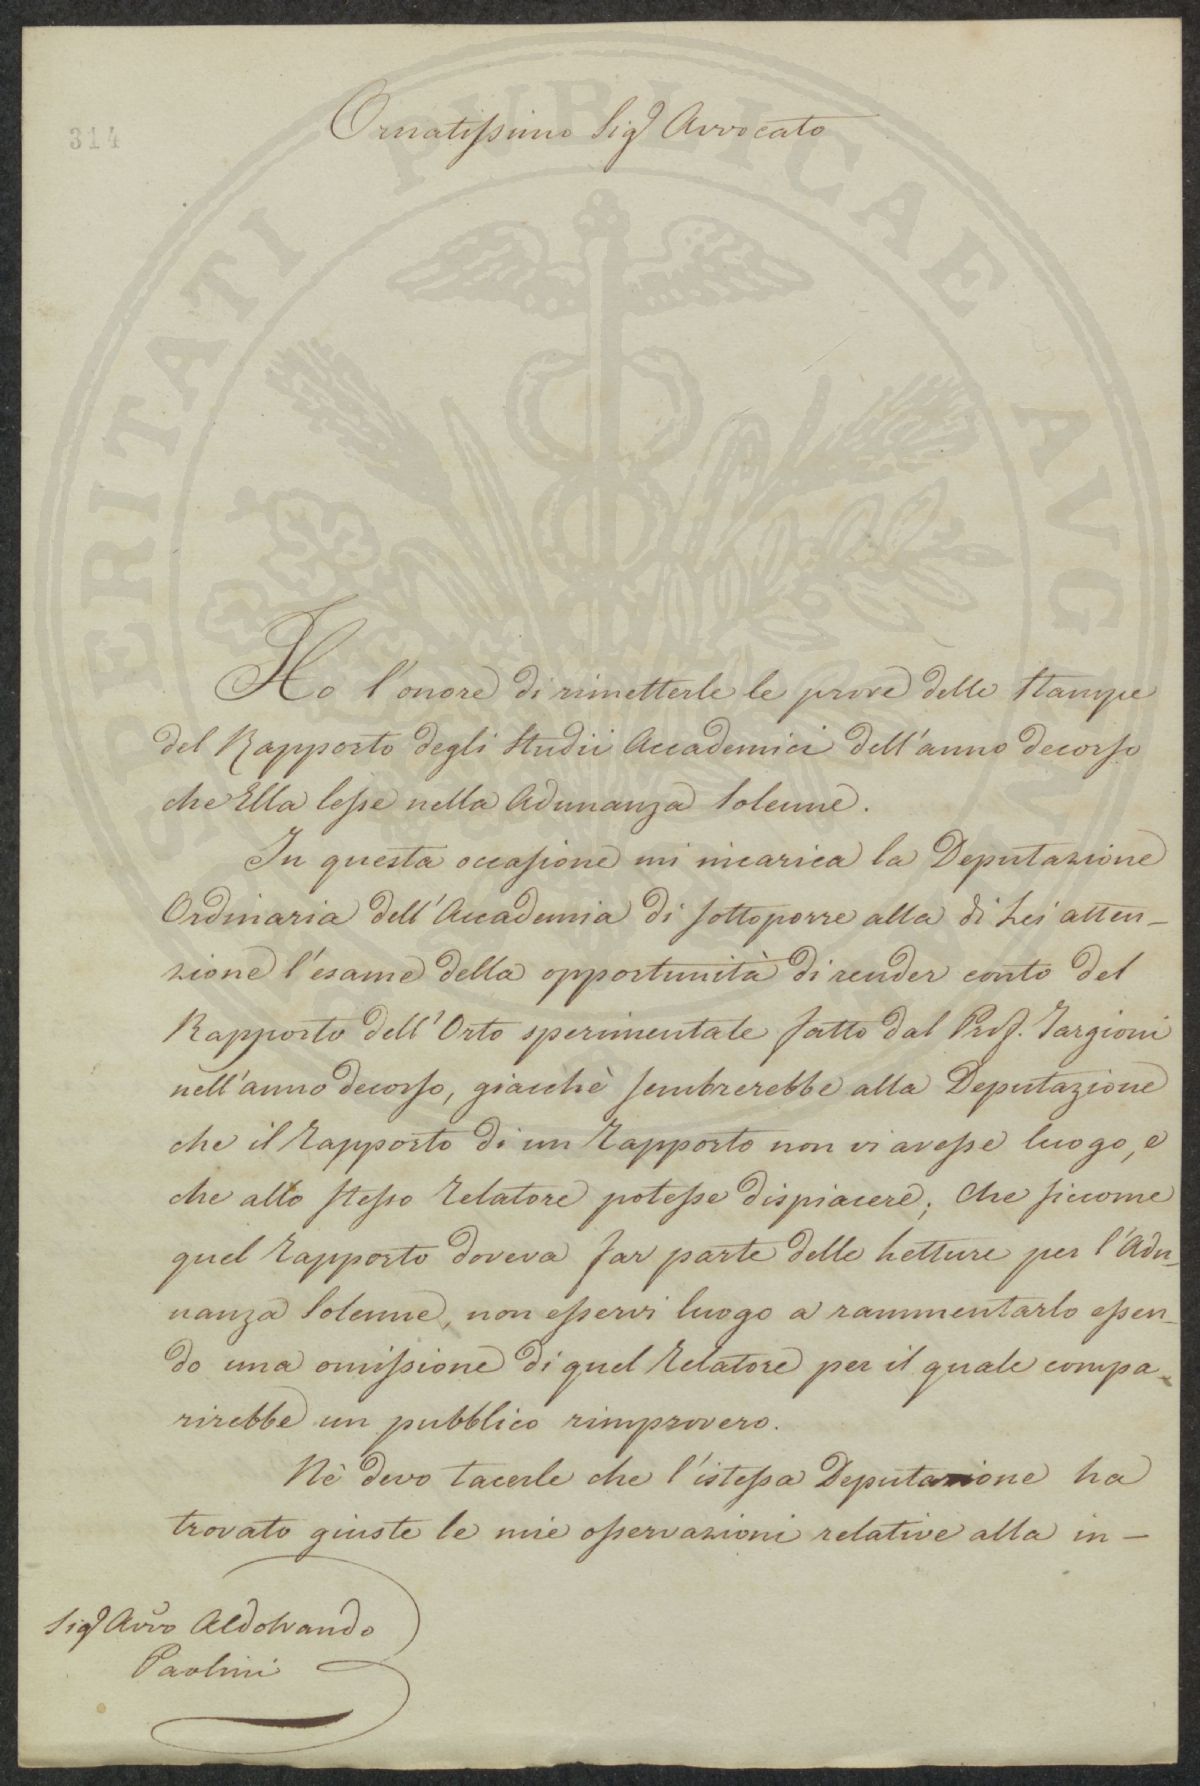 314
Ornatissimo Sig.r Avvocato
Ho l'onore di rimetterle le prove delle Stampe
del Rapporto degli Studii Accademici dell'anno decorso
che Ella lesse nella Adunanza Solenne.
In questa occasione mi incarica la Deputazione
Ordinaria dell'Accademia di sottoporre alla di Lei atten-
zione l'esame della opportunità di render conto del
Rapporto dell'Orto sperimentale fatto dal Prof. Targioni
nell'anno decorso, giacchè sembrerebbe alla Deputazione
che il rapporto di un rapporto non vi avesse luogo, e
che allo stesso relatore potesse dispiacere; che siccome
quel rapporto doveva far parte delle Letture per l'Adu-
nanza Solenne, non esservi luogo a rammentarlo essen-
do una omissione di quel relatore per il quale compa-
rirebbe un pubblico rimprovero.
Nè devo tacerle che l'istessa Deputazione ha
trovato giuste le mie osservazioni relative alla in-
Sig.r Avv.o Aldobrando
Paolini
PROSPERITATI PUBLICAE AVGENDAE